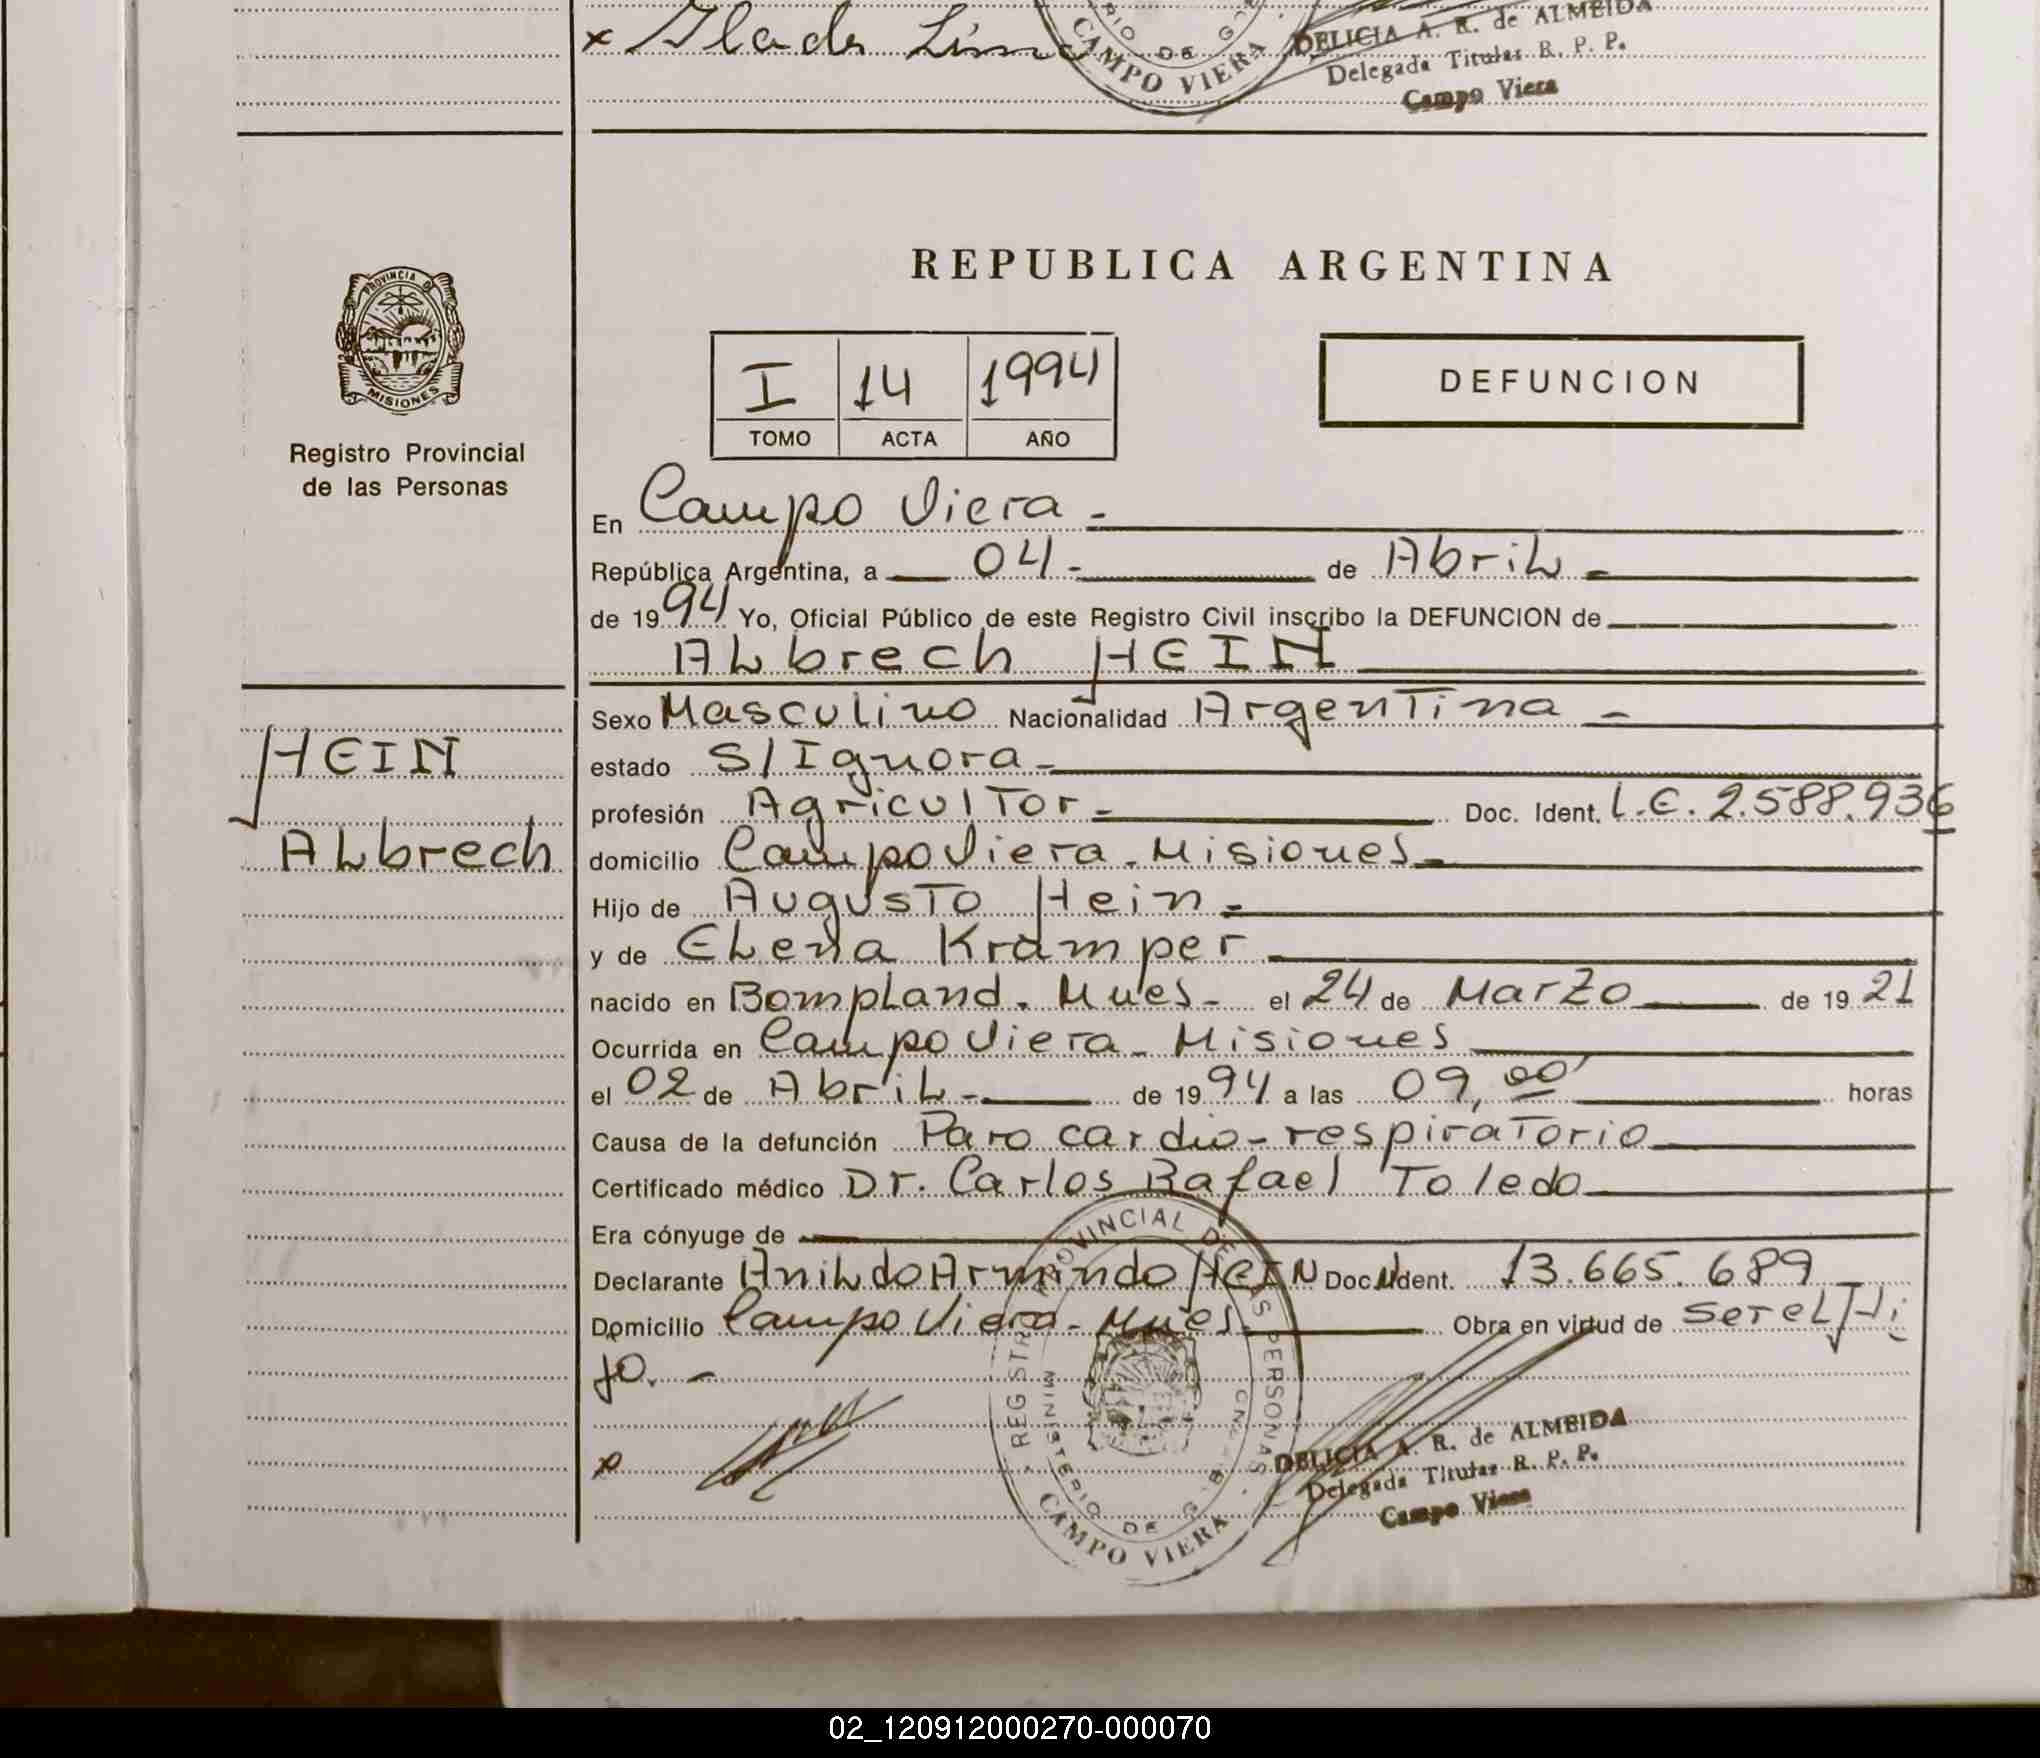 x Glades Lima
RIO DE GO
CAMPO VIERA
DELICIA A. R. de ALMEIDA
Delegada Titular R. P. P.
Campo Viera
PROVINCIA DE
MISIONES
Registro Provincial
de las Personas
REPUBLICA ARGENTINA
I 14 1994
TOMO ACTA AÑO
DEFUNCION
En Campo Viera -
República Argentina, a 04 - de Abril -
de 1994 Yo, Oficial Público de este Registro Civil inscribo la DEFUNCION de
Albrech HEIN
HEIN
Albrech
Sexo Masculino Nacionalidad Argentina -
estado S/Ignora -
profesión Agricultor - Doc. Ident. L.E. 2.588.936
domicilio Campo Viera - Misiones -
Hijo de Augusto Hein -
y de Elena Kramper
nacido en Bompland. Mnes - el 24 de Marzo de 1921
Ocurrida en Campo Viera - Misiones
el 02 de Abril - de 1994 a las 09,00 horas
Causa de la defunción Paro cardio-respiratorio
Certificado médico Dr. Carlos Rafael Toledo
Era cónyuge de
Declarante Anildo Armindo HEIN Doc. Ident. 13.665.689
Domicilio Campo Viera - Mnes - Obra en virtud de ser el Hi
jo. -
x
REGISTRO PROVINCIAL DE LAS PERSONAS
MINISTERIO DE G
CAMPO VIERA
DELICIA A. R. de ALMEIDA
Delegada Titular R. P. P.
Campo Viera
02_120912000270-000070